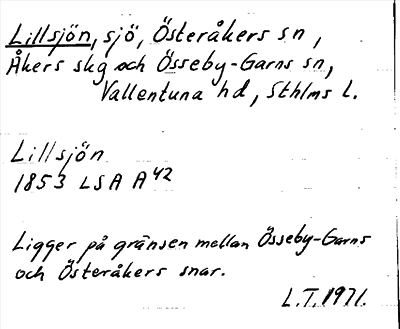 Lillsjön, sjö, Österåkers sn,
Åkers skg och Össeby-Garns sn,
Vallentuna hd, Sthlms l.
Lillsjön
1853 LSA A42
Ligger på gränsen mellan Össeby-Garns
och Österåkers snar.
L.T. 1971.